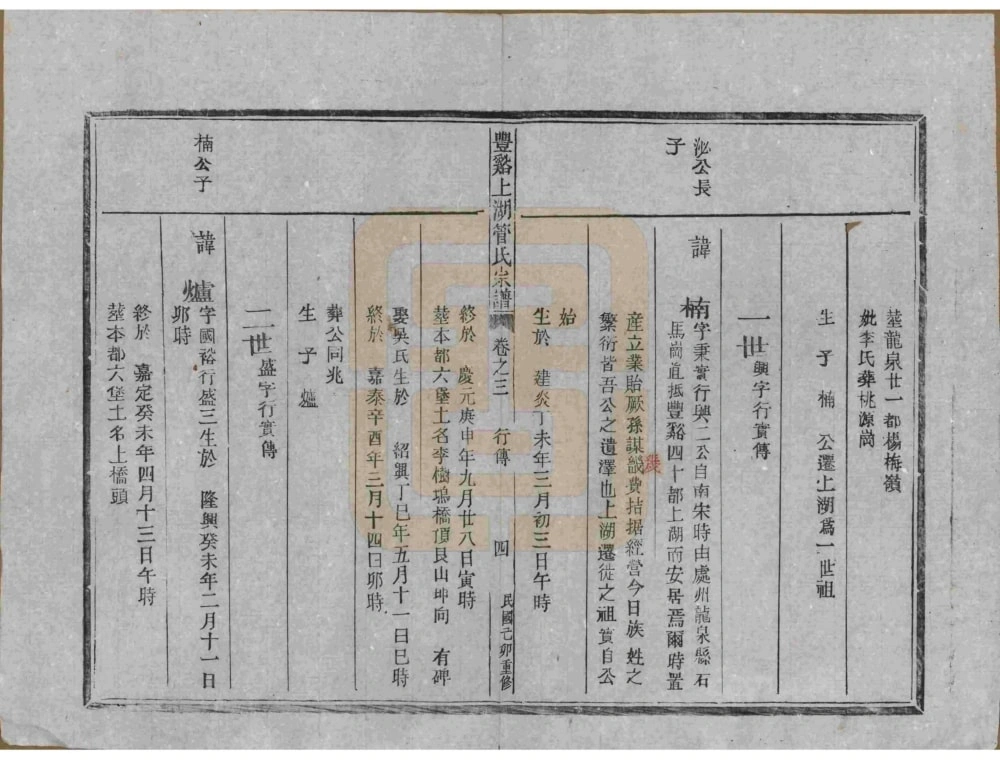 塟龍泉廿一都楊梅嶺
妣李氏葬桃源崗
生子楠 公遷上湖爲一世祖
一世興字行實傳
泌公長
子
諱楠字秉實行興二公自南宋時由處州龍泉縣石
馬崗直抵豐谿四十都上湖而安居焉爾時置
産立業貽厥孫謀幾費拮据經營今日族姓之
繁衍皆吾公之遺澤也上湖遷徙之祖實自公
始
生於 建炎丁未年三月初三日午時
豐谿上湖管氏宗譜 卷之三 行傳 四 民國己卯重修
終於 慶元庚申年九月廿八日寅時
塟本都六堡土名李樹塢橋頂艮山坤向 有碑
娶吳氏生於 紹興丁巳年五月十一日巳時
終於 嘉泰辛酉年三月十四日卯時
葬公同兆
生子爐
二世盛字行實傳
楠公子
諱爐字國裕行盛三生於 隆興癸未年二月十一日
卯時
終於 嘉定癸未年四月十三日午時
塟本都六堡土名上橋頭